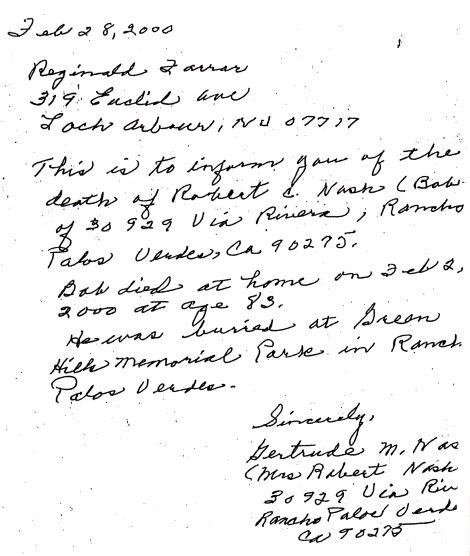 Feb 28, 2000
Reginald Farrar
319 Euclid ave
Loch Arbour, NJ 07717
This is to inform you of the
death of Robert C. Nash (Bob
of 30929 Via Rivera, Rancho
Palos Verdes, Ca 90275.
Bob died at home on Feb 2,
2000 at age 83.
He was buried at Green
Hills Memorial Park in Ranch
Palos Verdes.
Sincerely,
Gertrude M. Nas
(Mrs Robert Nash
30929 Via Riv
Rancho Palos Verde
Ca 90275